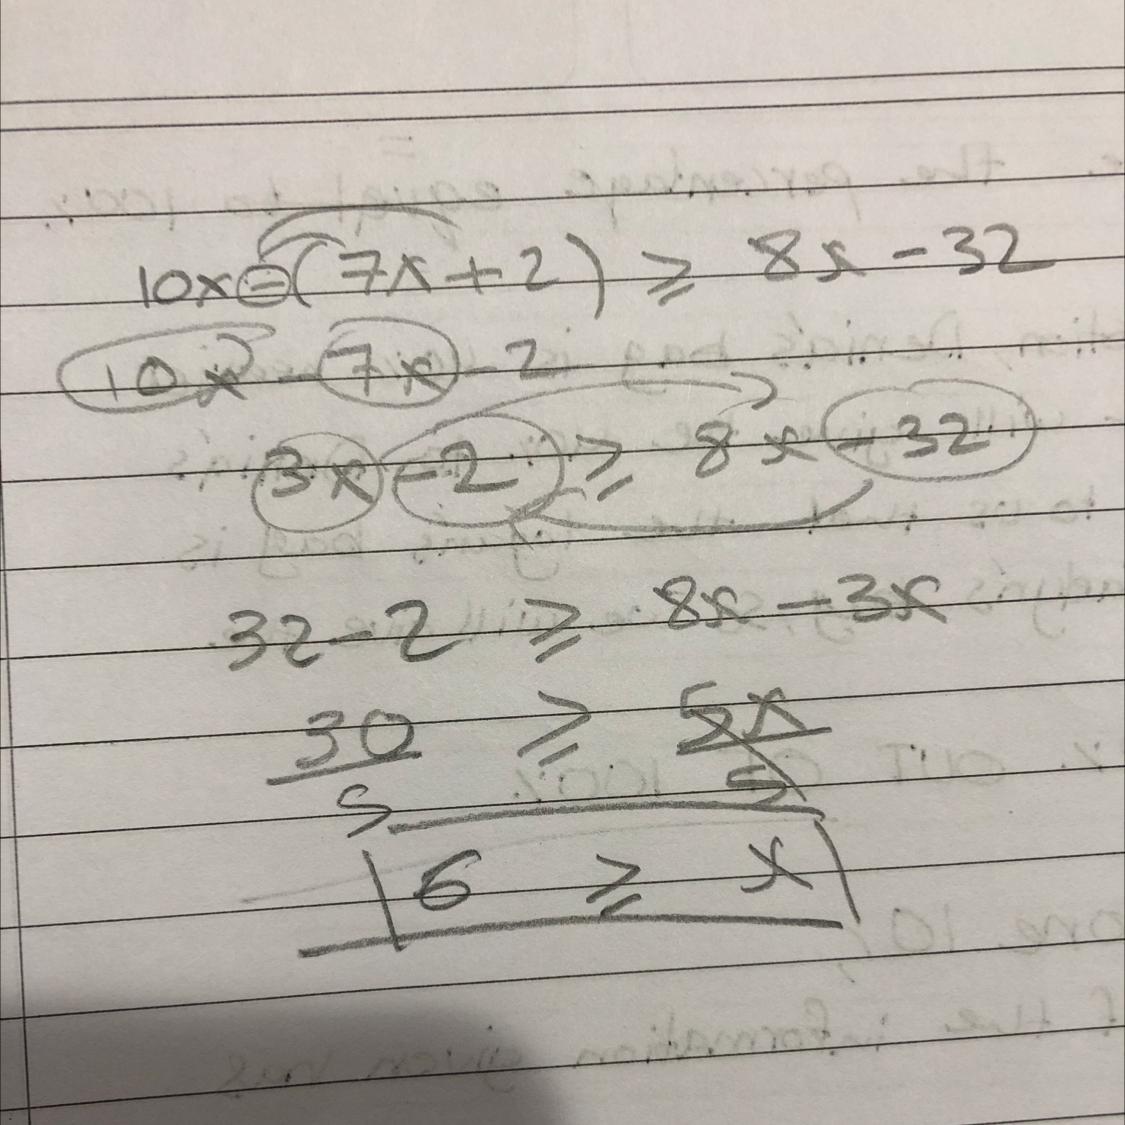 10x-(7x+2) ≥ 8x-32
10x - 7x - 2
3x - 2 ≥ 8x - 32
32 - 2 ≥ 8x - 3x
30/5 ≥ 5x/5
6 ≥ x